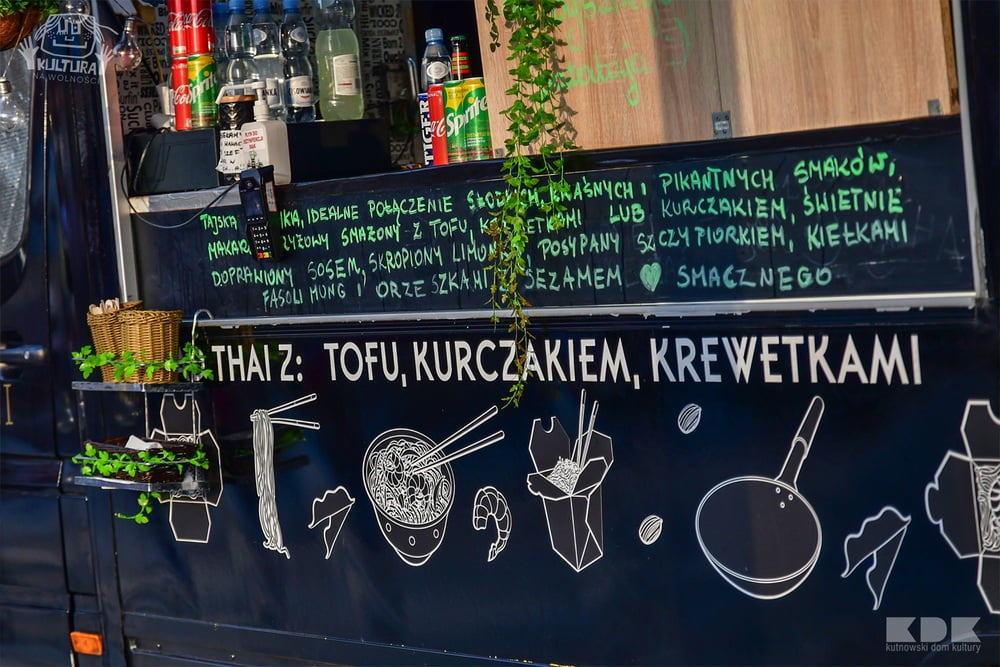 KULTURA
NA WOLNOŚCI
Coca-Cola
Coca-Cola
TIGER
Sprite
TAJSKA IKA, IDEALNE POŁĄCZENIE SŁODKICH, KWAŚNYCH I PIKANTNYCH SMAKÓW,
MAKAR RYŻOWY SMAŻONY Z TOFU, K ETKAMI LUB KURCZAKIEM, ŚWIETNIE
DOPRAWIONY SOSEM, SKROPIONY LIMO POSYPANY SZCZYPIORKIEM, KIEŁKAMI
FASOLI MUNG I ORZESZKAMI SEZAMEM SMACZNEGO
THAI Z: TOFU, KURCZAKIEM, KREWETKAMI
KDK
kutnowski dom kultury